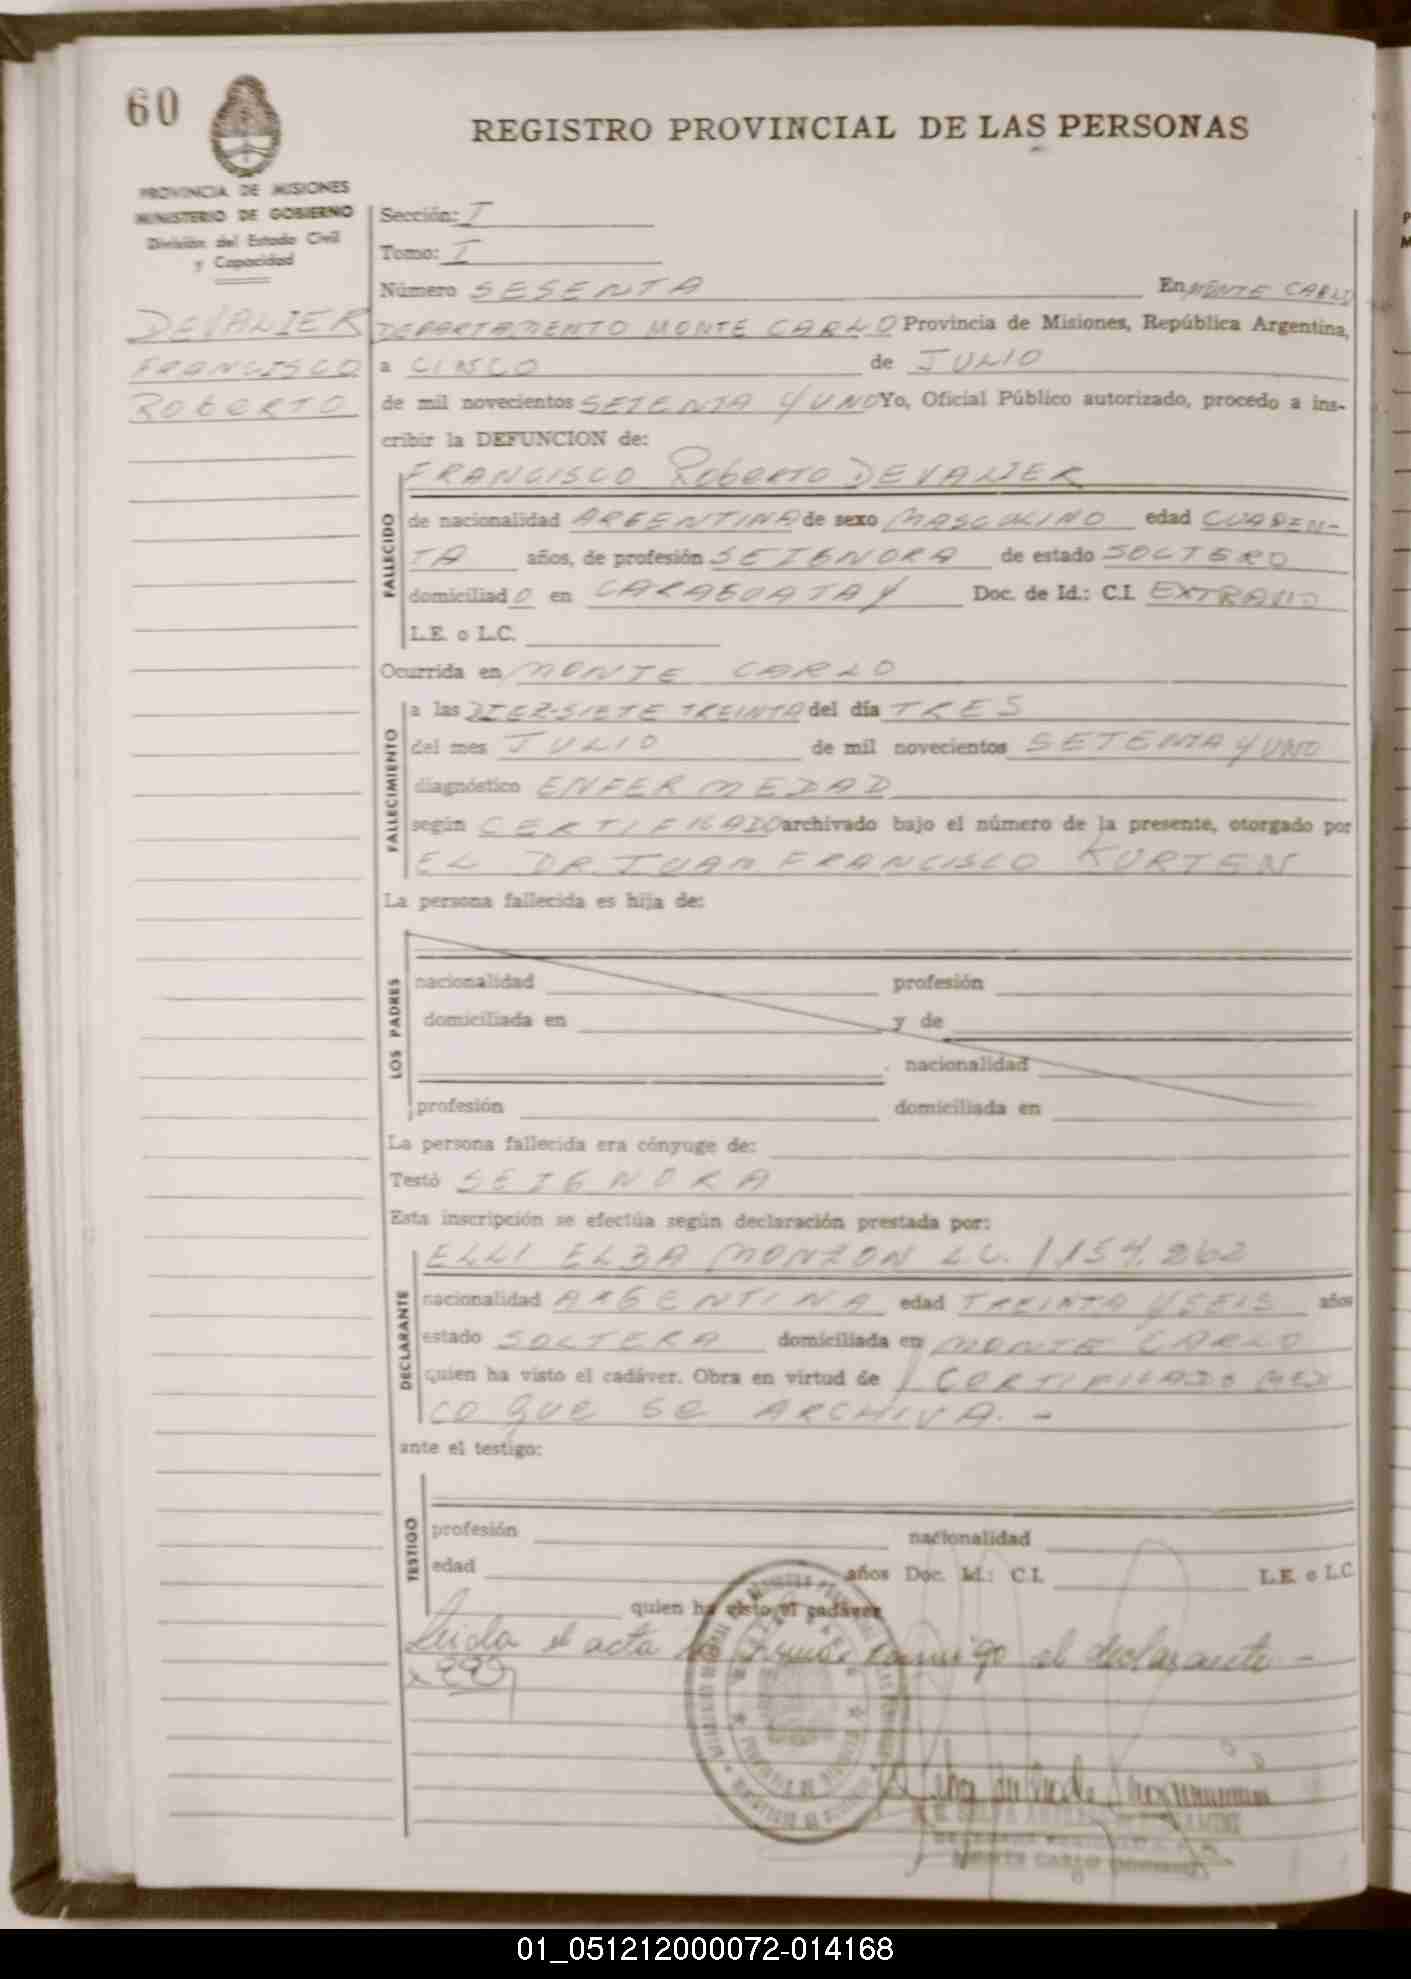 60
REGISTRO PROVINCIAL DE LAS PERSONAS
PROVINCIA DE MISIONES
MINISTERIO DE GOBIERNO
División del Estado Civil
y Capacidad
DEVALIER
FRANCISCO
ROBERTO
Sección: I
Tomo: I
Número SESENTA En MONTE CARLO
DEPARTAMENTO MONTE CARLO Provincia de Misiones, República Argentina,
a CINCO de JULIO
de mil novecientos SETENTA Y UNO Yo, Oficial Público autorizado, procedo a ins-
cribir la DEFUNCION de:
FRANCISCO ROBERTO DEVALIER
FALLECIDO
de nacionalidad ARGENTINA de sexo MASCULINO edad CUAREN-
TA años, de profesión SE IGNORA de estado SOLTERO
domiciliado en CARAGUATAY Doc. de Id.: C.I. EXTRAVIO
L.E. o L.C.
Ocurrida en MONTE CARLO
FALLECIMIENTO
a las DIEZ-SIETE TREINTA del día TRES
del mes JULIO de mil novecientos SETENTA Y UNO
diagnóstico ENFERMEDAD
según CERTIFICADO archivado bajo el número de la presente, otorgado por
EL DR. JUAN FRANCISCO KURTEN
La persona fallecida es hija de:
LOS PADRES
nacionalidad profesión
domiciliada en y de
nacionalidad
profesión domiciliada en
La persona fallecida era cónyuge de:
Testó SE IGNORA
Esta inscripción se efectúa según declaración prestada por:
DECLARANTE
ELLI ELBA MONZON L.C. 1.154.262
nacionalidad ARGENTINA edad TREINTA Y SEIS años
estado SOLTERA domiciliada en MONTE CARLO
quien ha visto el cadáver. Obra en virtud de CERTIFICADO MEDI
CO QUE SE ARCHIVA. -
ante el testigo:
TESTIGO
profesión nacionalidad
edad años Doc. Id.: C.I. L.E. o L.C.
quien ha visto el cadáver
Leida el acta la firma conmigo el declarante -
MONTE CARLO
01_051212000072-014168